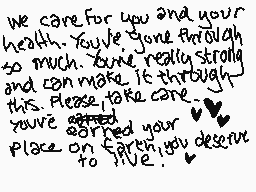 we care for you and your
health. You've gone through
so much. You're really strong
and can make it through
this. Please, take care.
you've earned your
place on Earth, you deserve
to live.